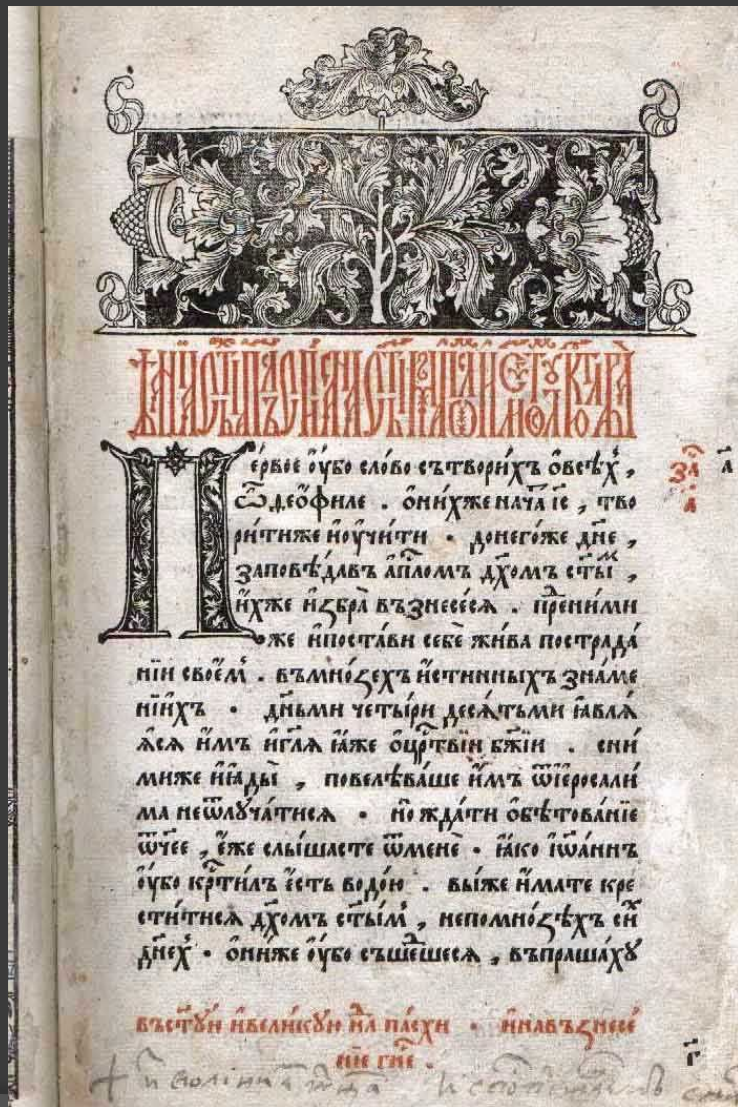 П
ервое ѹ҆́бо сло́во сътвори́хъ ѻ҆всѣ́хъ ,
ѿ ѳео҆́филе . ѻ҆ни́хже нача́т і҆с҃ , тво
ри́тиже и҆ѹ҆чи́ти · донего́же дн҃е ,
заповѣ́давъ а҆пⷭ҇ломъ дх҃омъ ст҃ыⷨ ,
и҆́хже и҆ꙁбра̀ възнесе́сѧ . преⷣни́ми
же и҆поста́ви себѐ жи́ва пострада́
нїи свое́мъ . въмно́ꙁехъ и҆́стинныхъ зна́ме
нїихъ · дн҃ьми четы́ри десѧ́тьми ꙗ҆влѧ́
ѧ҆сѧ и҆̀мъ и҆гл҃ѧ ꙗ҆́же ѻ҆црⷭ҇твїи бж҃їи . сни́
миже и҆ꙗ҆ды́и , повелѣ́ваше и҆̀мъ ѿі҆еросали́
ма неѿлꙋча́тисѧ · но жда́ти ѻ҆бѣтова́нїе
ѿч҃ее , е҆́же слы́шасте ѿменѐ · ꙗ҆́ко і҆ѡ҆а́ннъ
ѹ҆́бо крⷭ҇ти́лъ е҆́сть водо́ю . вы́же и҆́мате кре
сти́тисѧ дх҃омъ ст҃ы́мъ , непомно́ꙁѣхъ си́хъ
дн҃ехъ · ѻ҆ни́же ѹ҆́бо съше́дшесѧ , въпраша́хꙋ
въст҃ꙋ́ю и҆вели́кꙋю нⷣлю па́схи · и҆навъꙁнесе́
нїе гн҃е .